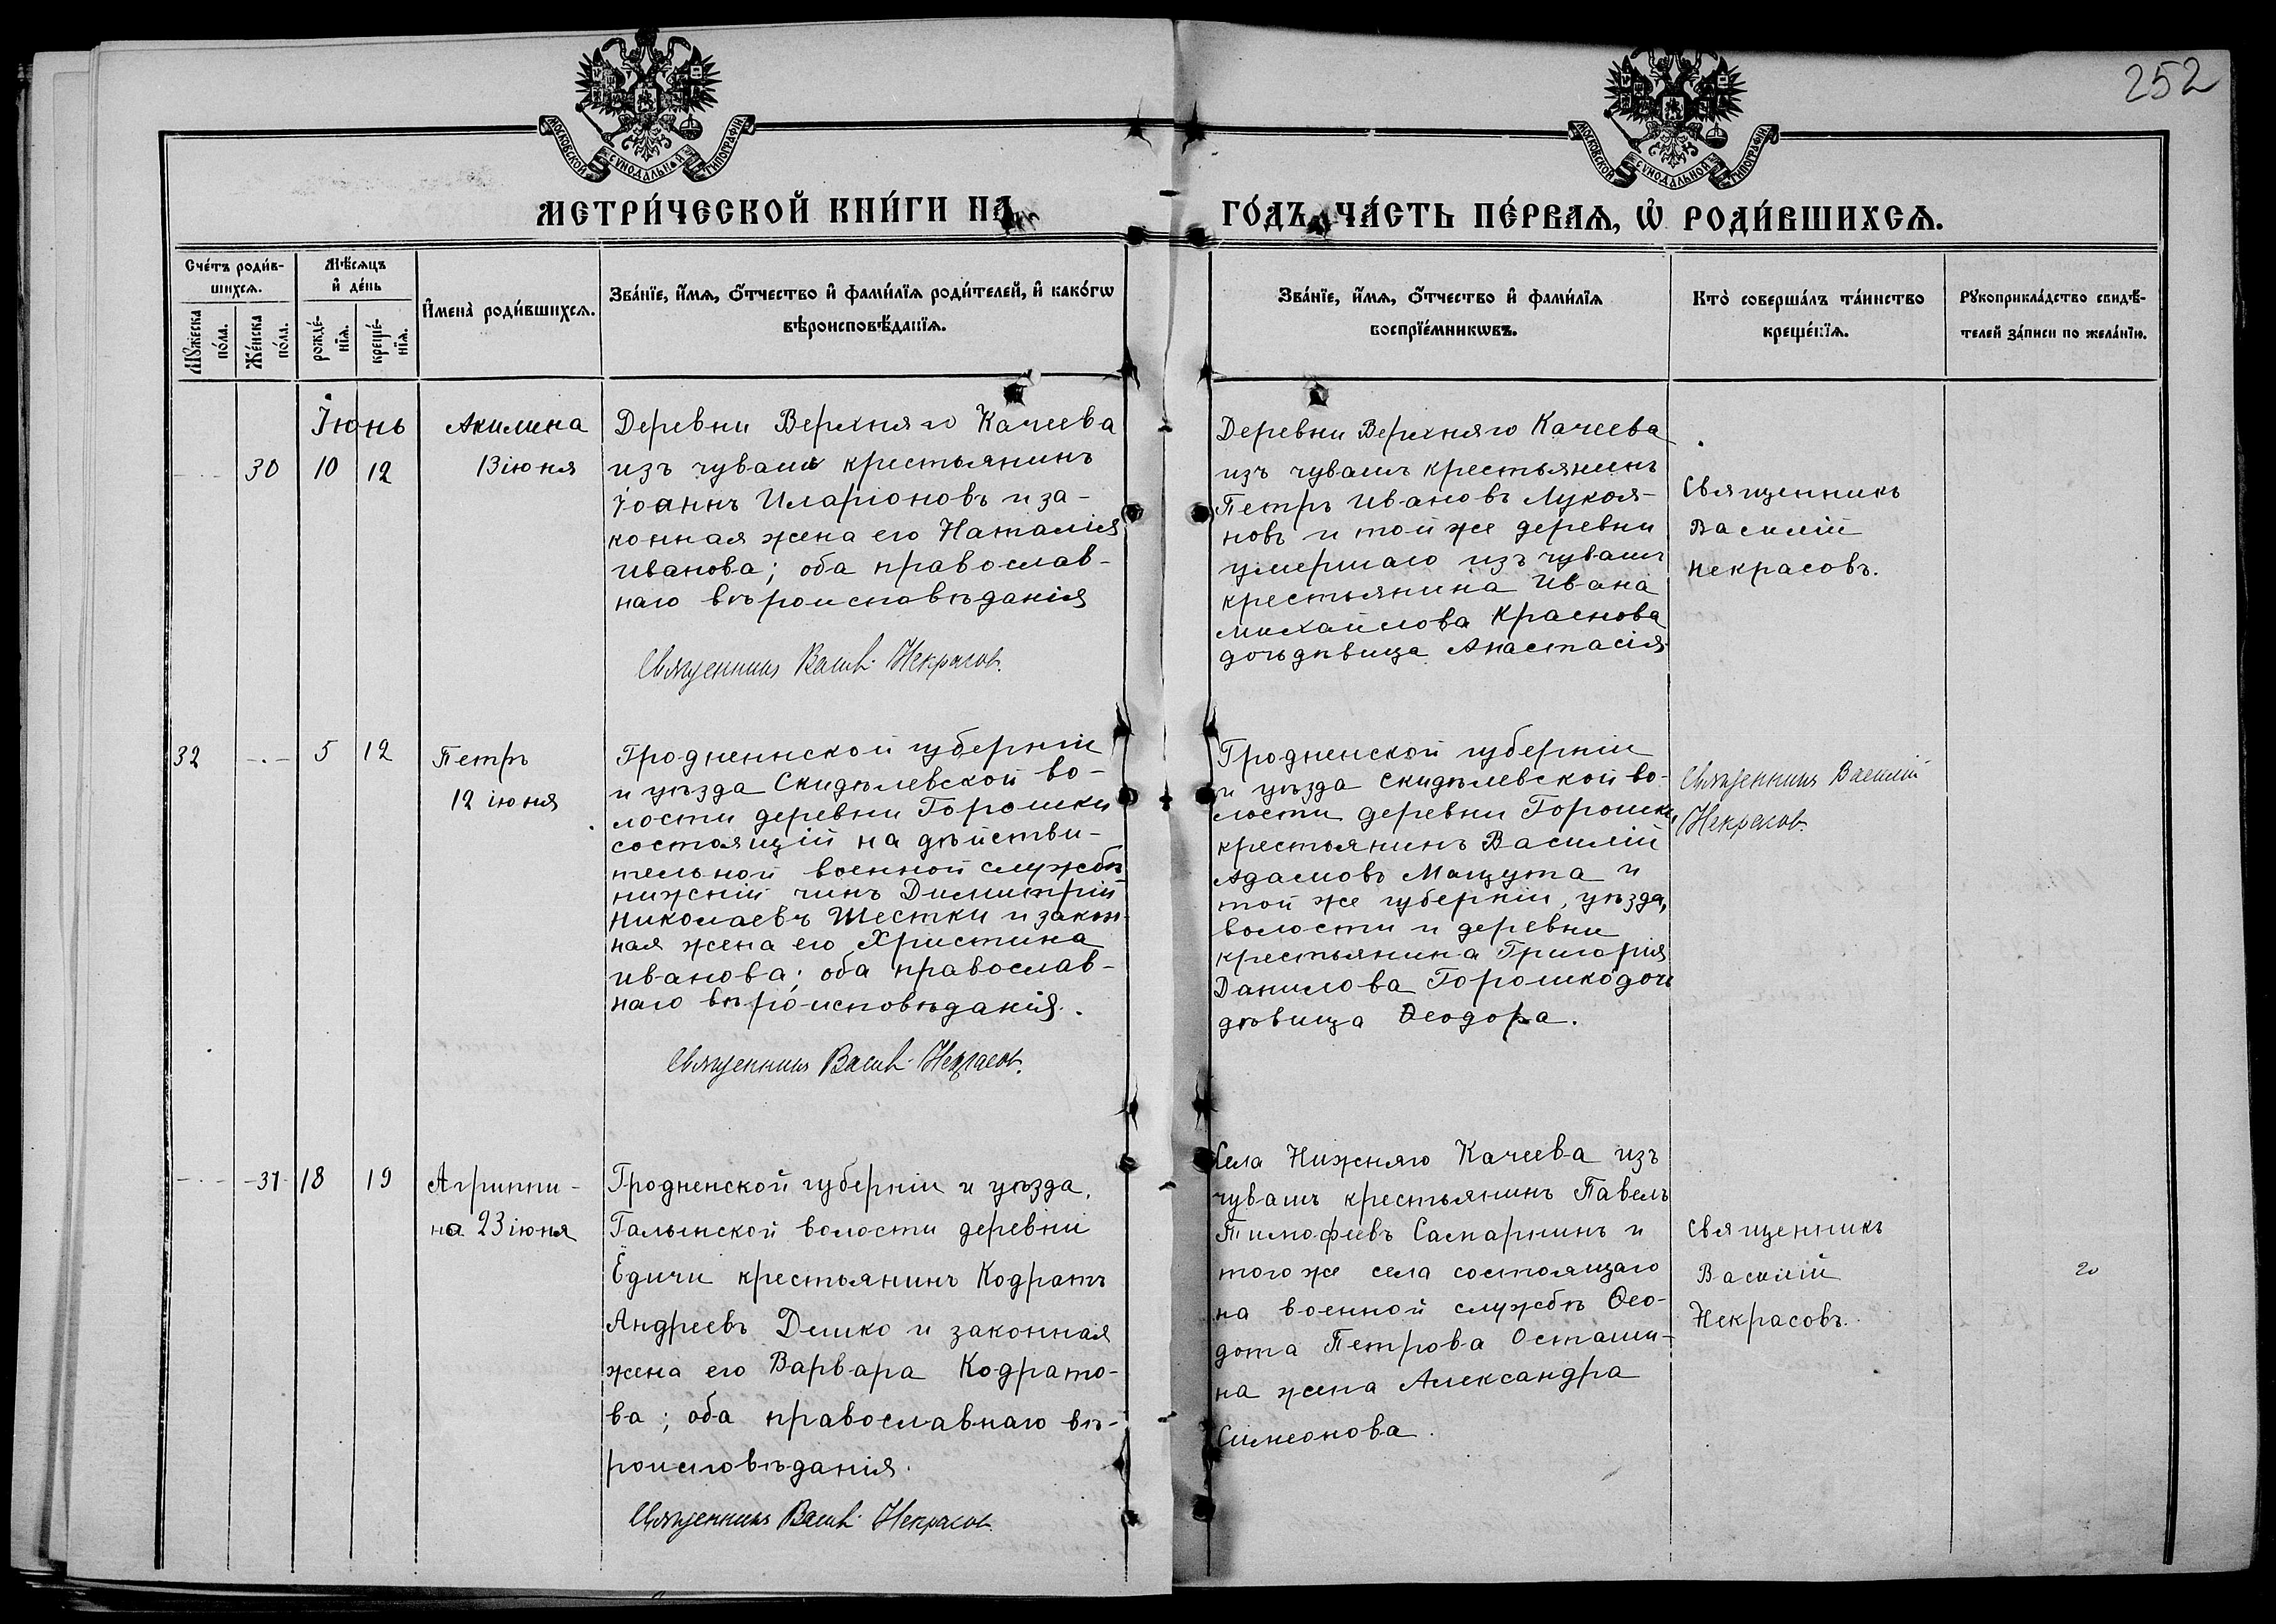 252
МОСКОВСКОЙ СѴНОДАЛЬНОЙ ТИПОГРАФІИ
МОСКОВСКОЙ СѴНОДАЛЬНОЙ ТИПОГРАФІИ
МЕТРИ́ЧЕСКОЙ КНИ́ГИ НА
ГО́ДЪ, ЧА́СТЬ ПЕ́РВАѦ, Ѡ҆ РОДИ́ВШИХСѦ.
Сче́тъ роди́в-
шихсѧ.
Мѣ́сѧцъ
и҆ де́нь
И҆мена̀ роди́вшихсѧ.
Зва́нїе, и҆́мѧ, ѻ҆́тчество и҆ фами́лїѧ роди́телей, и҆ како́гѡ
вѣроисповѣ́данїѧ.
Мꙋ́жеска
по́ла.
Же́нска
по́ла.
рожде́-
нїѧ.
креще́-
нїѧ.
Зва́нїе, и҆́мѧ, ѻ҆́тчество и҆ фами́лїѧ
воспрїе́мникѡвъ.
Кто̀ соверша́лъ та́инство
креще́нїѧ.
Рꙋкоприкла́дство свидѣ́-
телей за́писи по жела́нїю.
Іюнь
30
10
12
Акилина
13 іюня
Деревни Верхняго Качеева
изъ чувашъ крестьянинъ
Іоаннъ Иларіоновъ и за-
конная жена его Наталія
Иванова; оба православ-
наго вѣроисповѣданія
Священникъ Васил. Некрасов.
Деревни Верхняго Качеева
изъ чувашъ крестьянинъ
Петръ Ивановъ Лукоя-
новъ и той же деревни
умершаго изъ чувашъ
крестьянина Ивана
Михайлова Краснова
дочь дѣвица Анастасія
Священникъ
Василій
Некрасовъ.
32
5
12
Петръ
12 іюня
Гродненнской губерніи
и уѣзда Скидѣлевской во-
лости деревни Горошки
состоящій на дѣйстви-
тельной военной службѣ
нижній чинъ Димитрій
Николаевъ Шестки и закон-
ная жена его Христина
Иванова; оба православ-
наго вѣроисповѣданія.
Священникъ Васил. Некрасов.
Гродненской губерніи
и уѣзда Скидѣлевской во-
лости деревни Горошки,
крестьянинъ Василій
Адамовъ Мацута и
той же губерніи, уѣзда,
волости и деревни
крестьянина Григорія
Данилова Горошко дочь
дѣвица Ѳеодора.
Священникъ Василій
Некрасов.
31
18
19
Агриппи-
на 23 іюня
Гродненской губерніи и уѣзда,
Галынской волости деревни
Едичи крестьянинъ Кодратъ
Андреевъ Демко и законная
жена его Варвара Кодрато-
ва; оба православнаго вѣ-
роисповѣданія.
Священникъ Васил. Некрасов.
Села Нижняго Качеева изъ
чувашъ крестьянинъ Павелъ
Тимофеевъ Самаркинъ и
того же села состоящаго
на военной службѣ Ѳео-
дота Петрова Осташи-
на жена Александра
Симеонова.
Священникъ
Василій
Некрасовъ.